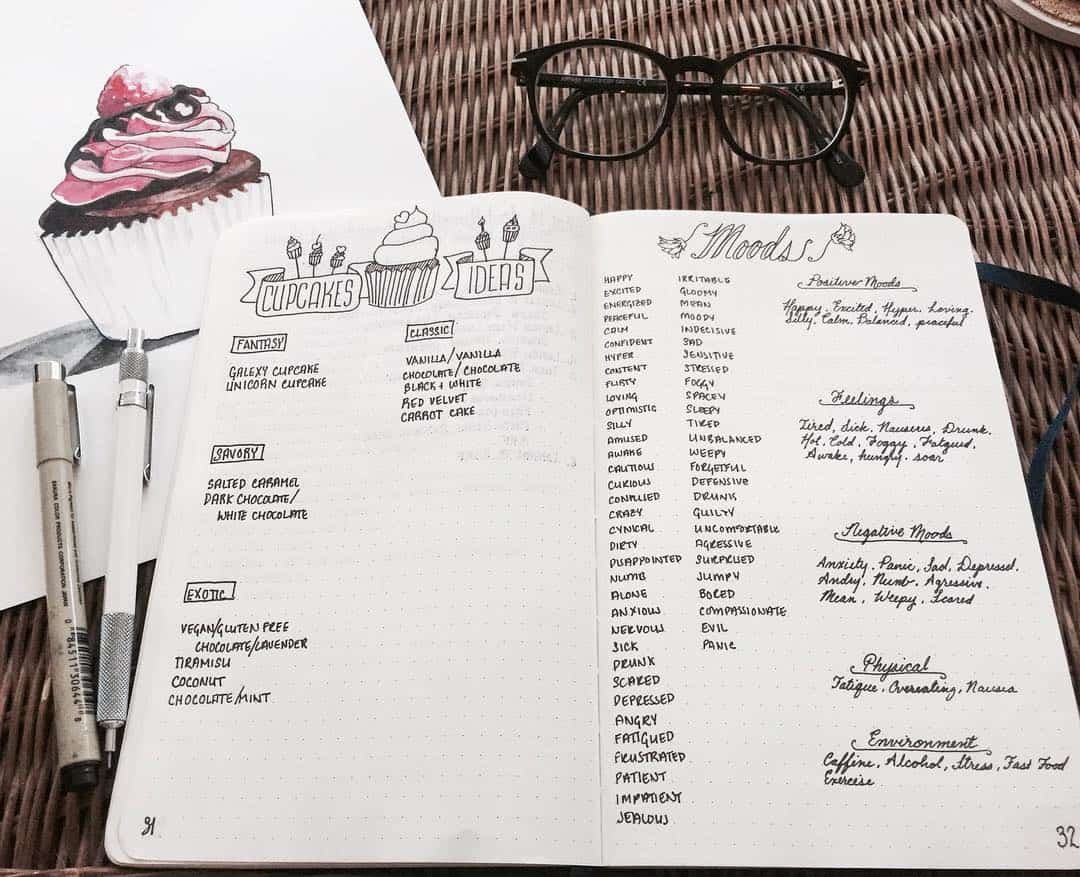 CUPCAKES IDEAS
FANTASY
GALEXY CUPCAKE
UNICORN CUPCAKE
CLASSIC
VANILLA/VANILLA
CHOCOLATE/CHOCOLATE
BLACK + WHITE
RED VELVET
CARROT CAKE
SAVORY
SALTED CARAMEL
DARK CHOCOLATE/
WHITE CHOCOLATE
EXOTIC
VEGAN/GLUTEN FREE
CHOCOLATE/LAVENDER
TIRAMISU
COCONUT
CHOCOLATE/MINT
31
Moods
HAPPY
EXCITED
ENERGIZED
PEACEFUL
CALM
CONFIDENT
HYPER
CONTENT
FLIRTY
LOVING
OPTIMISTIC
SILLY
AMUSED
AWAKE
CAUTIOUS
CURIOUS
CONFUSED
CRAZY
CYNICAL
DIRTY
DISAPPOINTED
NUMB
ALONE
ANXIOUS
NERVOUS
SICK
DRUNK
SCARED
DEPRESSED
ANGRY
FATIGUED
FRUSTRATED
PATIENT
IMPATIENT
JEALOUS
IRRITABLE
GLOOMY
MEAN
MOODY
INDECISIVE
SAD
SENSITIVE
STRESSED
FOGGY
SPACEY
SLEEPY
TIRED
UNBALANCED
WEEPY
FORGETFUL
DEFENSIVE
DRUNK
GUILTY
UNCOMFORTABLE
AGRESSIVE
SURPRISED
JUMPY
BORED
COMPASSIONATE
EVIL
PANIC
Positive Moods
Happy, Excited, Hyper, Loving,
Silly, Calm, Balanced, peaceful
Feelings
Tired, sick, Nauseus, Drunk,
Hot, Cold, Foggy, Fatgued,
Awake, hungry, soar
Negative Moods
Anxiety, Panic, Sad, Depressed,
Andry, Numb, Agressive,
Mean, Weepy, Scared
Physical
Fatique, Overeating, Nausea
Environment
Caffine, Alcohol, Stress, Fast Food
Exercise
32
SAKURA COLOR PRODUCTS CORPORATION JAPAN
0 84511 30644 8